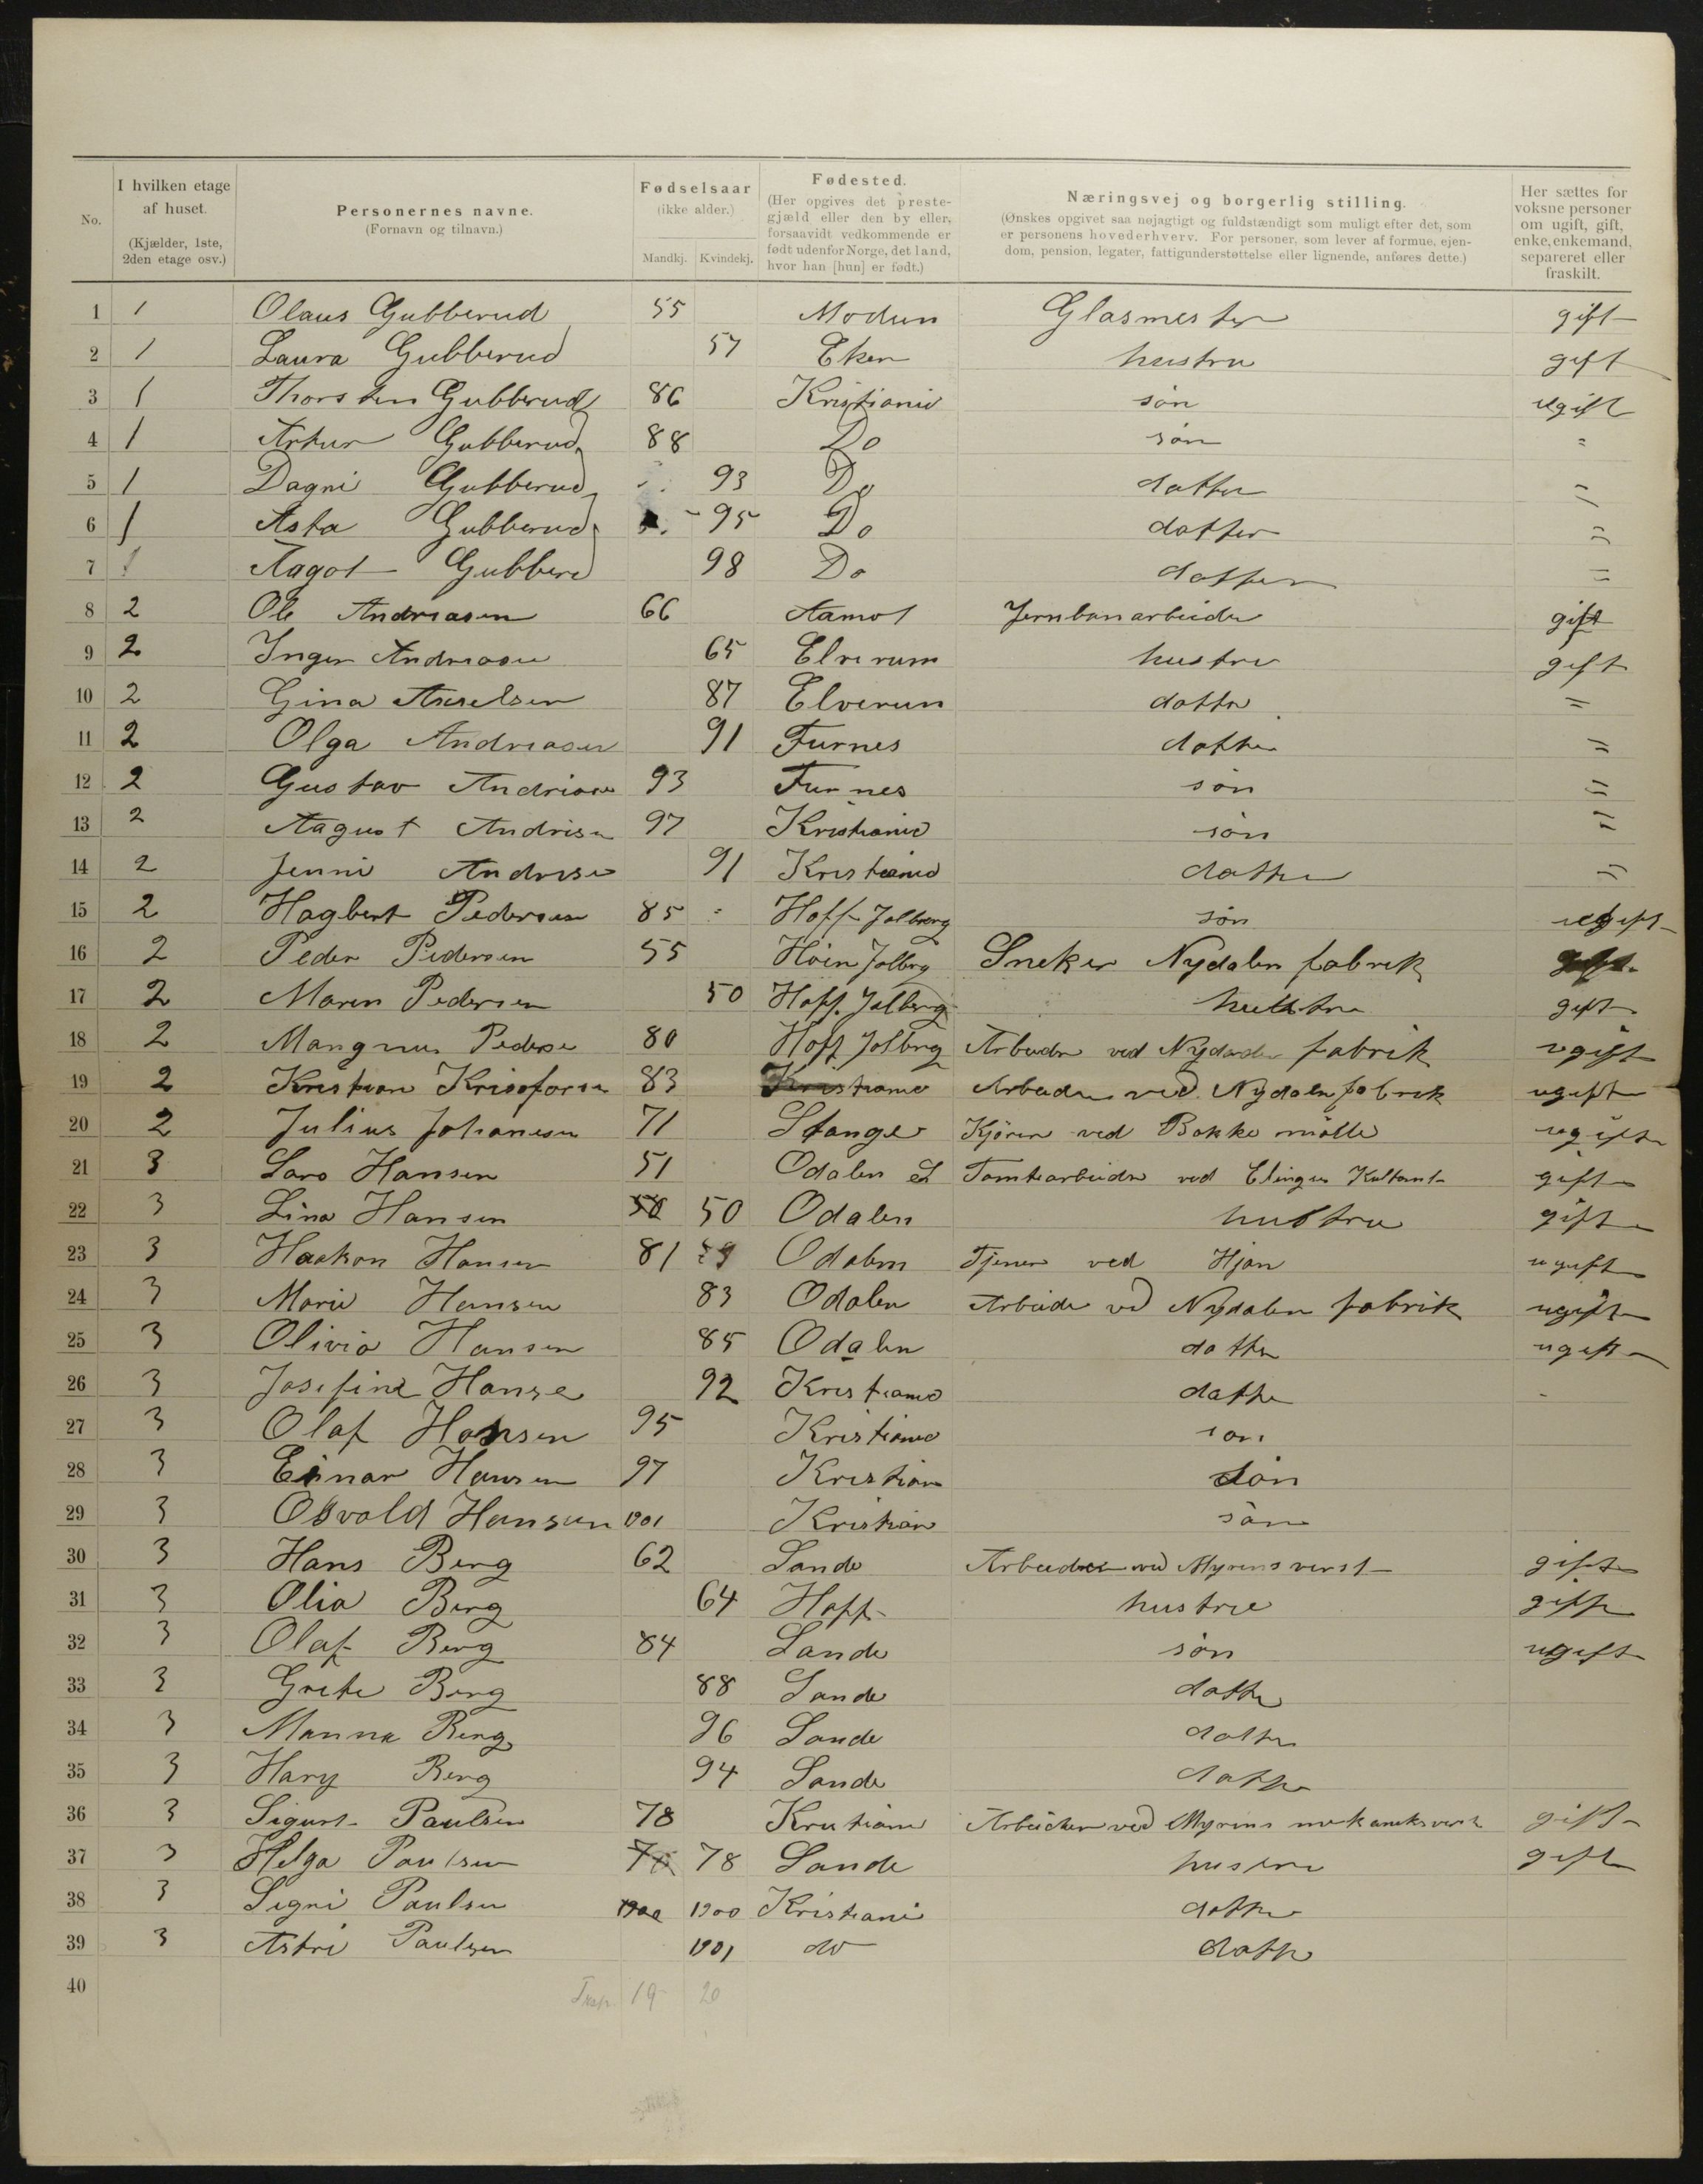 No.
I hvilken etage af huset. (Kjælder, 1ste, 2den etage osv.)
Personernes navne. (Fornavn og tilnavn.)
Fødselsaar (ikke alder.) Mandkj. Kvindekj.
Fødested. (Her opgives det prestegjæld eller den by eller, forsaavidt vedkommende er født udenfor Norge, det land, hvor han [hun] er født.)
Næringsvej og borgerlig stilling. (Ønskes opgivet saa nøjagtigt og fuldstændigt som muligt efter det, som er personens hovederhverv. For personer, som lever af formue, ejendom, pension, legater, fattigunderstøttelse eller lignende, anføres dette.)
Her sættes for voksne personer om ugift, gift, enke, enkemand, separeret eller fraskilt.
1 1 Olaus Gubberud 55 Modum Glasmester gift
2 1 Laura Gubberud 57 Eker hustru gift
3 1 Thorsten Gubberud 86 Kristiania søn ugift
4 1 Artur Gubberud 88 Do søn "
5 1 Dagni Gubberud 93 Do datter "
6 1 Asta Gubberud 95 Do datter "
7 1 Aagot Gubberu 98 Do datter "
8 2 Ole Andreasen 66 Aamot Jernbanarbeider gift
9 2 Inger Andreasen 65 Elverum hustru gift
10 2 Gina 87 Elverum datter "
11 2 Olga Andreasen 91 Furnes datter "
12 2 Gustav Andriasen 93 Furnes søn "
13 2 Aagust Andrisen 97 Kristiania søn "
14 2 Jenni Andrisen 91 Kristiania datter "
15 2 Hagbert Pedersen 85 Hoff Jolberg søn ugift
16 2 Peder Pedersen 55 Jolbrg Sneker Nydalen fabrik
17 2 Maren Pedersen 50 Hoff. Jolberg hustru gift
18 2 Mangnus Pederse 80 Hoff Jolbrg Arbeider ved Nydalen fabrik ugift
19 2 Kristian Krisoforsen 83 Kristiania Arbeider ved Nydalen fabrik ugift
20 2 Julius Johanesen 71 Stange Kjörer ved Bakke mølle ugift
21 3 Lars Hansen 51 Odalen Tomtearbeider ved gift
22 3 Lina Hansen 50 50 Odalen hustru gift
23 3 Haakon Hansen 81 Odalen Tjener ved ugift
24 3 Marie Hansen 83 Odalen Arbeider ved Nydalen fabrik ugift
25 3 Olivia Hansen 85 Odalen datter ugift
26 3 Josefine Hanse 92 Kristiania datter -
27 3 Olaf Hansen 95 Kristiania søn
28 3 Einar Hansen 97 Kristian søn
29 3 Osvald Hansen 1901 Kristian søn
30 3 Hans Berg 62 Sande Arbeider ved Myrens verst gift
31 3 Olia Berg 64 Hoff hustru gift
32 3 Olaf Berg 84 Sande søn ugift
33 3 Grete Berg 88 Sande datter
34 3 Manna Berg 96 Sande datter
35 3 Hary Berg 94 Sande datter
36 3 Sigurt Paulsen 78 Kristiani Arbeider ved Myrens mekaneksverk gift
37 3 Helga Paulsen 78 Sande hustru gift
38 3 Signi Paulsen 1900 1900 Kristiani datter
39 3 Astri Paulsen 1901 do datter
40 19 20